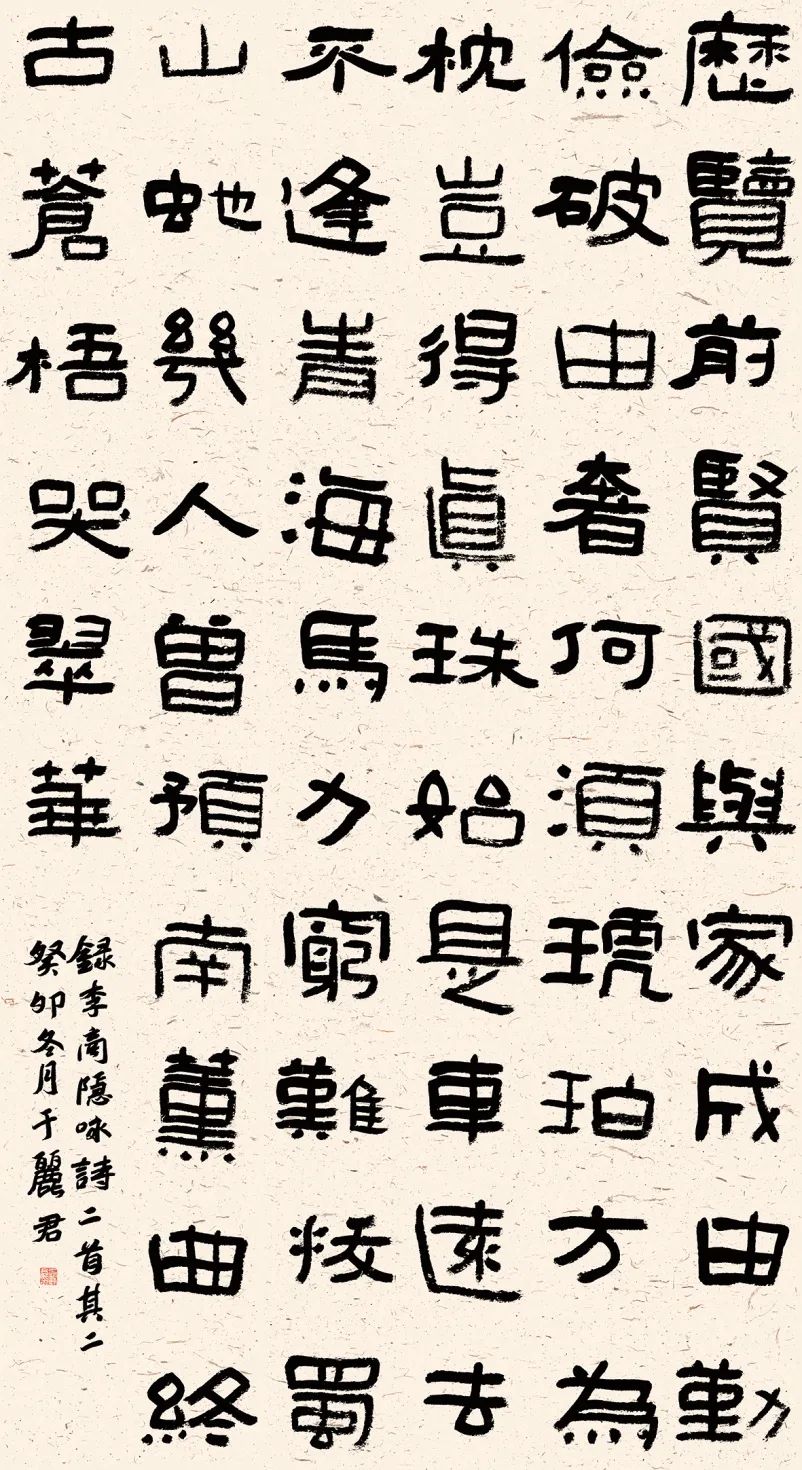 歷覽前賢國與家成由勤
儉破由奢何須琥珀方為
枕豈得眞珠始是車遠去
不逢青海馬力窮難拔蜀
山虵幾人曾預南薰曲終
古蒼梧哭翠華
録李商隱咏詩二首其二
癸卯冬月于麗君